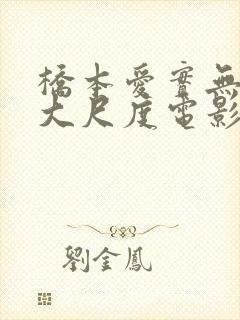 橋本愛實無
大尺度電影
劉金鳳